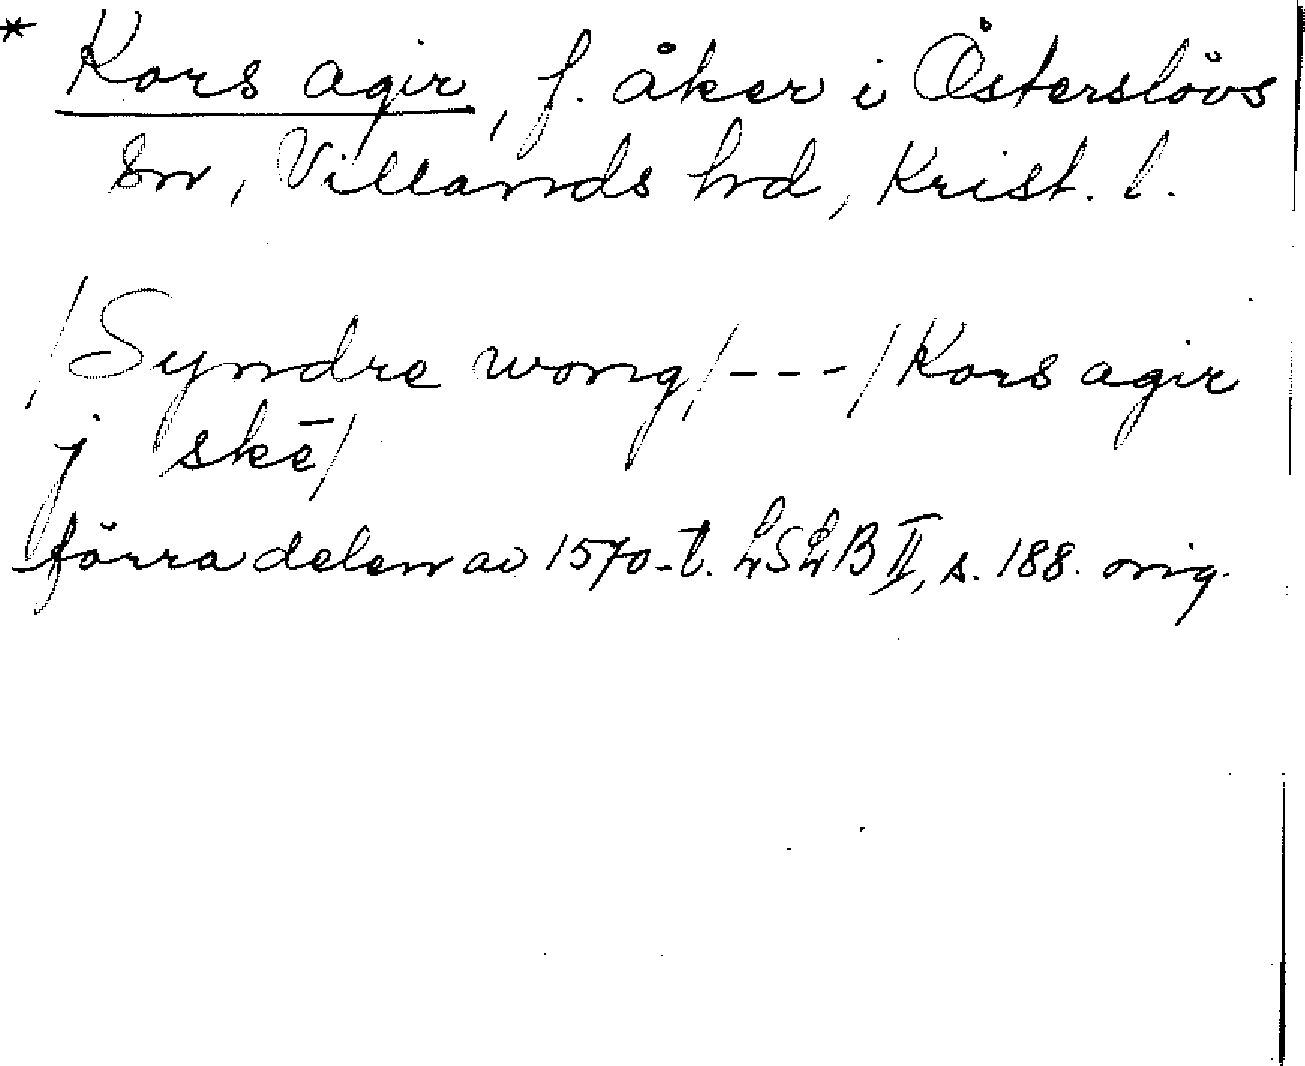 * Kors agir, f. åker i Österslövs
sn, Villands hd, Krist. l.
/Syndre wong/---/Kors agir
j skē/
förra delen av 1570-t. LSLB II, s. 188. orig.